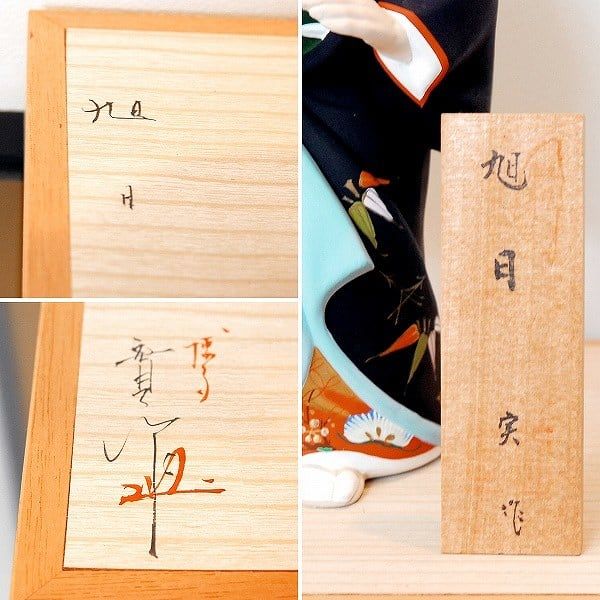 旭
日
博多
實作
旭日
実作